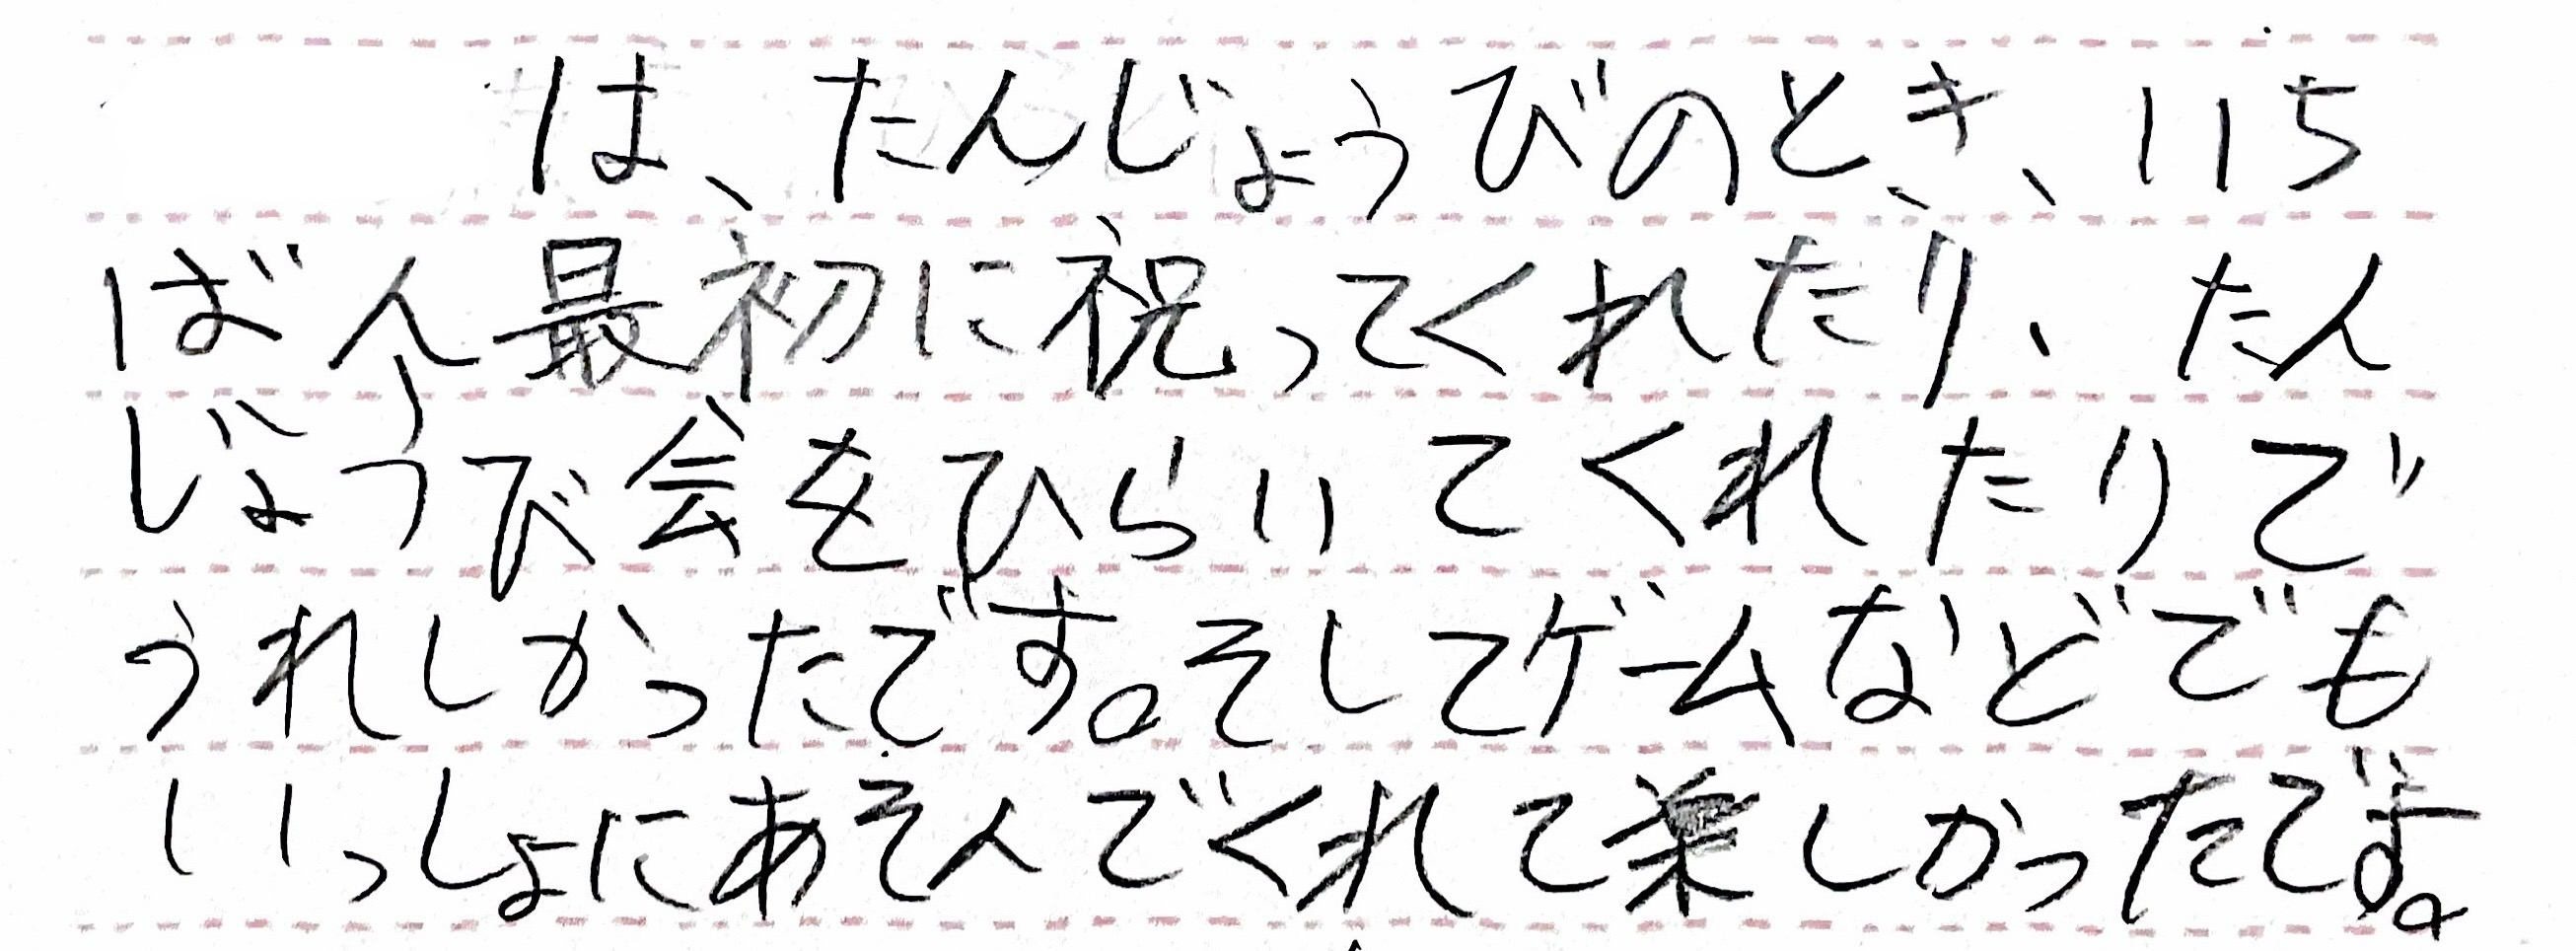 は、たんじょうびのとき、いち
ばん最初に祝ってくれたり、たん
じょうび会をひらいてくれたりで
うれしかったです。そしてゲームなどでも
いっしょにあそんでくれて楽しかったです。